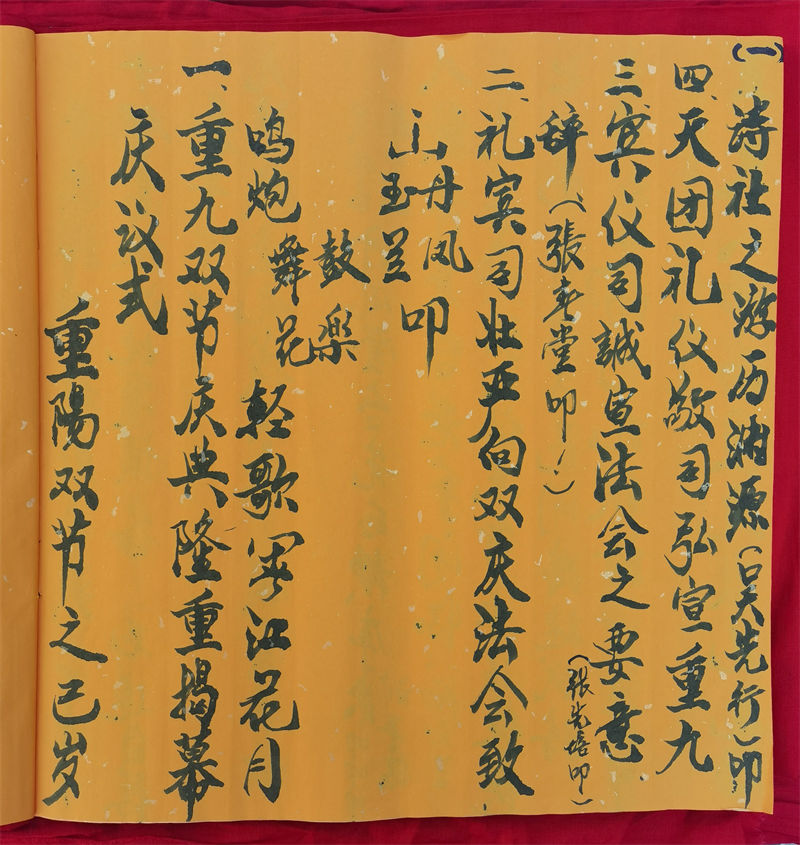 （一）
重陽双节之己岁
庆议式
一、重九双节庆典隆重揭幕
鸣炮
舞花
鼓楽
軽歌江花月
山
玉兰
丹凤
叩
二、礼宾司壮亚向双庆法会致
辞（張春堂叩）
三、宾仪司誠宣法会之要意
（張先培叩）
四、天团礼仪敬司弘宣重九
诗社之游历渊源（吴先行）叩